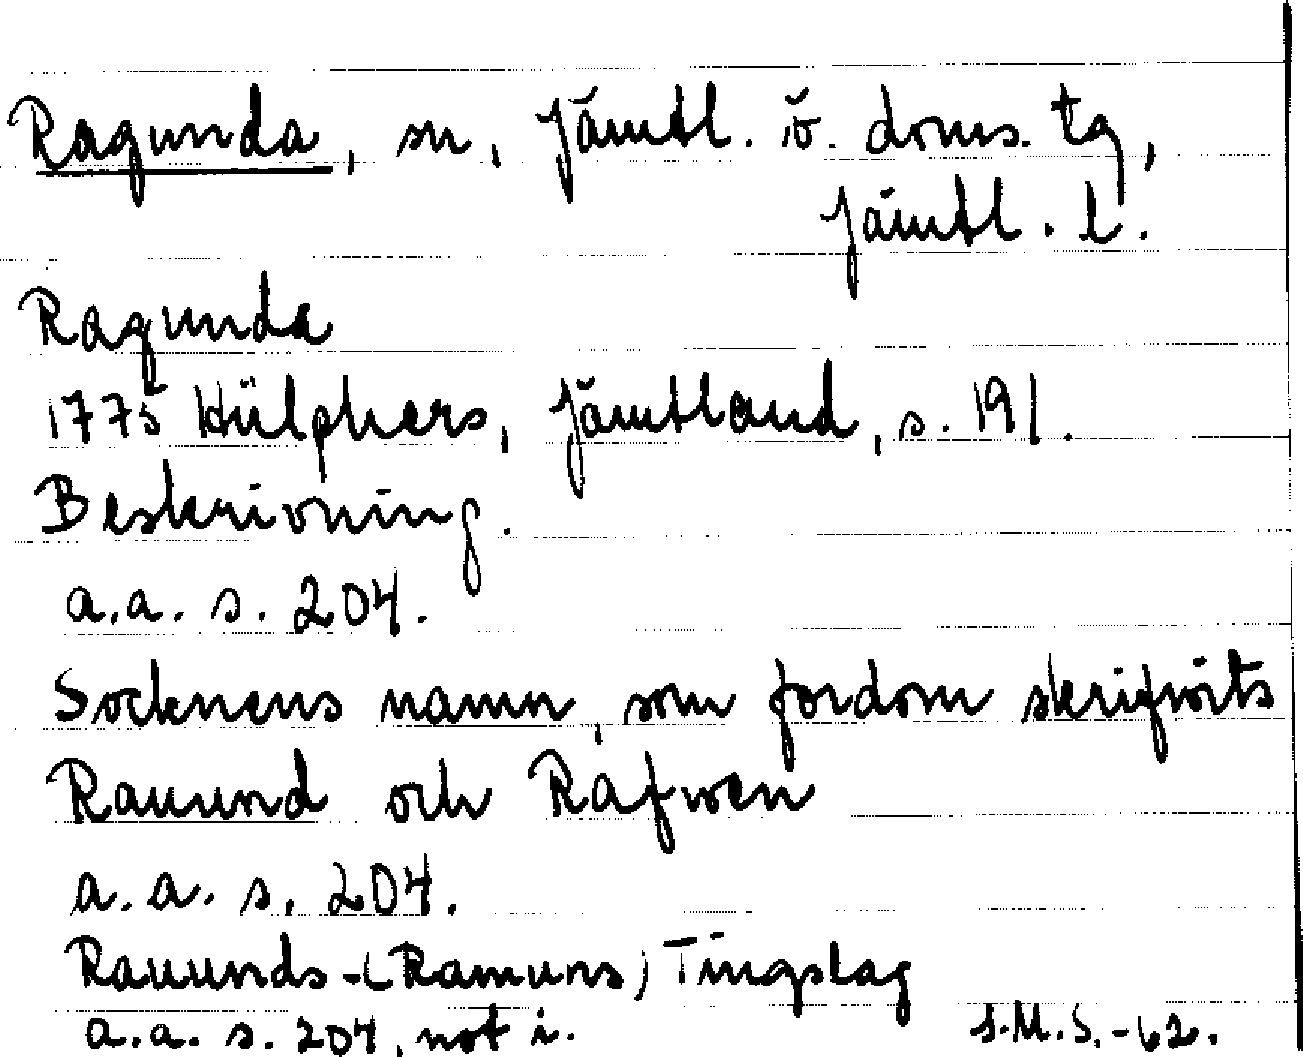 Ragunda, sn, Jämtl. ö. doms. tg,
Jämtl. l.
Ragunda
1775 Hülphers, Jämtland, s. 191.
Beskrivning.
a.a. s. 204.
Socknens namn, som fordom skrifwits
Rauund och Räfwen
a.a. s. 204.
Rauunds-(Ramuns) Tingslag
a.a. s. 204, not i.
S.M.S.-62.